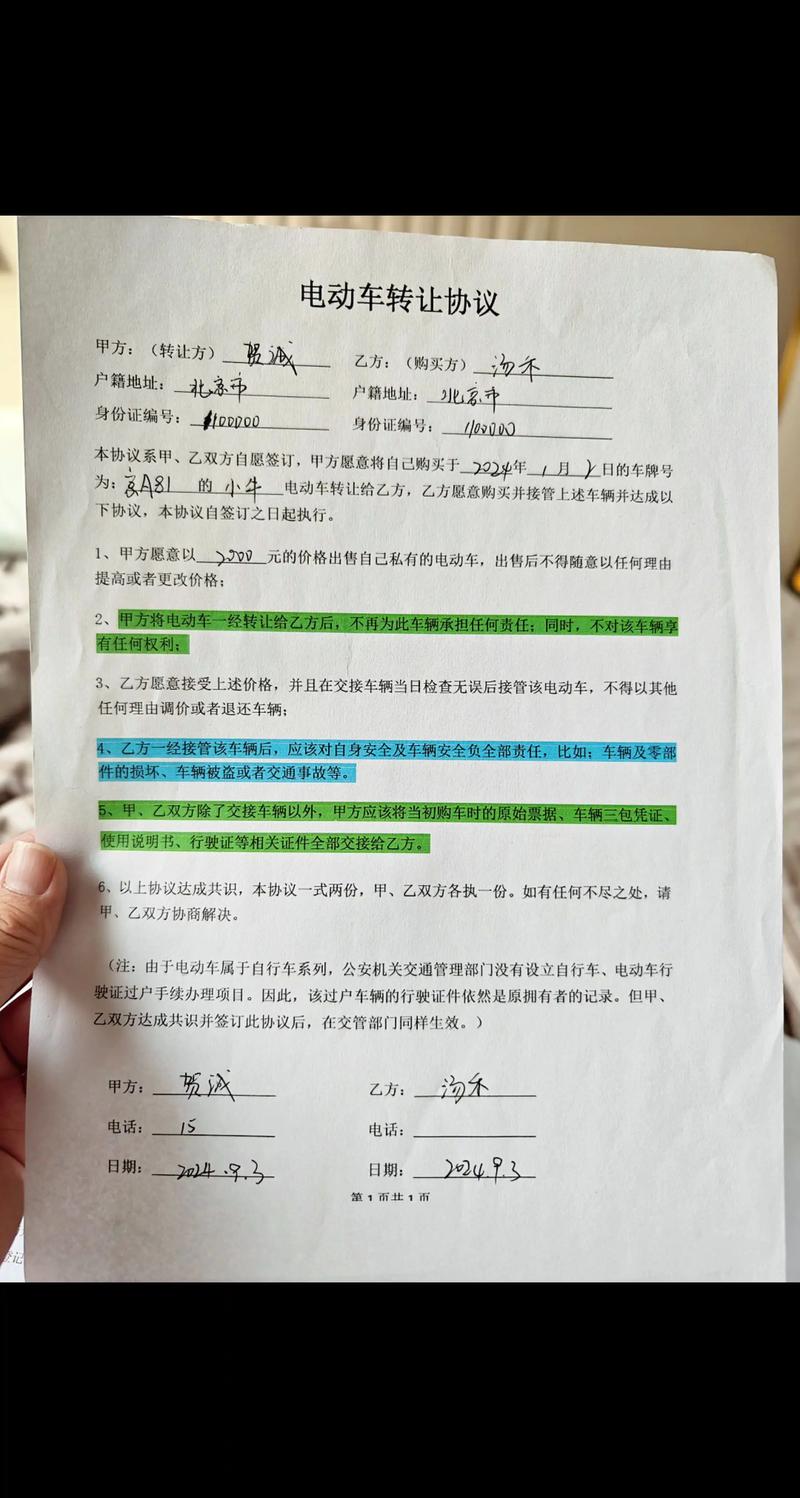 电动车转让协议
甲方：（转让方）贺诚 乙方：（购买方）汤禾
户籍地址：北京市 户籍地址：北京市
身份证编号：1100000 身份证编号：110000
本协议系甲、乙双方自愿签订，甲方愿意将自己购买于2024年1月2日的车牌号
为：京A81的小牛电动车转让给乙方，乙方愿意购买并接管上述车辆并达成以
下协议，本协议自签订之日起执行。
1、甲方愿意以2000元的价格出售自己私有的电动车，出售后不得随意以任何理由
提高或者更改价格；
2、甲方将电动车一经转让给乙方后，不再为此车辆承担任何责任；同时，不对该车辆享
有任何权利；
3、乙方愿意接受上述价格，并且在交接车辆当日检查无误后接管该电动车，不得以其他
任何理由调价或者退还车辆；
4、乙方一经接管该车辆后，应该对自身安全及车辆安全负全部责任，比如；车辆及零部
件的损坏、车辆被盗或者交通事故等。
5、甲、乙双方除了交接车辆以外，甲方应该将当初购车时的原始票据、车辆三包凭证、
使用说明书、行驶证等相关证件全部交接给乙方。
6、以上协议达成共识，本协议一式两份，甲、乙双方各执一份。如有任何不尽之处，请
甲、乙双方协商解决。
（注：由于电动车属于自行车系列，公安机关交通管理部门没有设立自行车、电动车行
驶证过户手续办理项目。因此，该过户车辆的行驶证件依然是原拥有者的记录。但甲、
乙双方达成共识并签订此协议后，在交管部门同样生效。）
甲方：贺诚 乙方：汤禾
电话：15 电话：
日期：2024.9.3 日期：2024.9.3
第1页共1页
登记